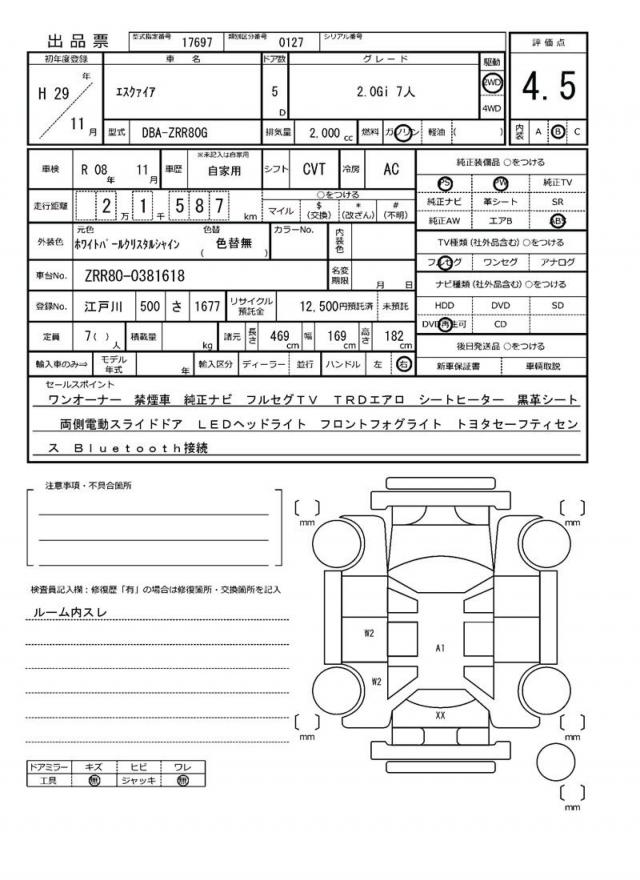 出品票 型式指定番号 17697 類別区分番号 0127 シリアル番号
評価点
4.5
内装 A B C
初年度登録 車名 ドア数 グレード 駆動
H 29 年 エスクァイア 5 D 2.0Gi 7人 2WD
4WD
11 月 型式 DBA-ZRR80G 排気量 2,000 cc 燃料 ガソリン 軽油 ( )
車検 R 08 年 11 月 車歴 ※未記入は自家用 自家用 シフト CVT 冷房 AC
走行距離 2 万 1 千 5 8 7 km ○をつける
マイル $ (交換) * (改ざん) # (不明)
外装色 元色 ホワイトパールクリスタルシャイン 色替 ( 色替無 ) カラーNo. 内装色
車台No. ZRR80-0381618 名変期限 月 日
登録No. 江戸川 500 さ 1677 リサイクル預託金 12,500円預託済 未預託
定員 7( ) 人 積載量 kg 諸元 長さ 469 cm 幅 169 cm 高さ 182 cm
輸入車のみ⇒ モデル年式 年 輸入区分 ディーラー 並行 ハンドル 左 右
純正装備品 ○をつける
PS PW 純正TV
純正ナビ 革シート SR
純正AW エアB ABS
TV種類(社外品含む)○をつける
フルセグ ワンセグ アナログ
ナビ種類(社外品含む)○をつける
HDD DVD SD
DVD再生可 CD
後日発送品 ○をつける
新車保証書 車輌取説
セールスポイント
ワンオーナー 禁煙車 純正ナビ フルセグTV TRDエアロ シートヒーター 黒革シート
両側電動スライドドア LEDヘッドライト フロントフォグライト トヨタセーフティセン
ス Bluetooth接続
注意事項・不具合箇所
検査員記入欄：修復歴「有」の場合は修復箇所・交換箇所を記入
ルーム内スレ
ドアミラー キズ ヒビ ワレ
工具 無 ジャッキ 無
mm
mm
W2
A1
W2
XX
mm
mm
mm